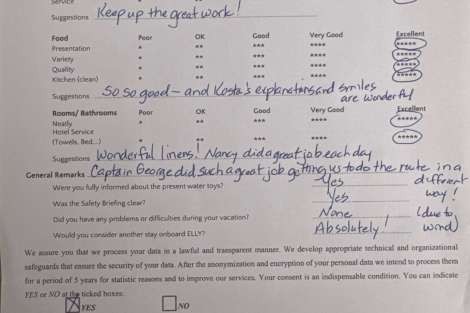 Service
Suggestions Keep up the great work!
Food Poor OK Good Very Good Excellent
Presentation * ** *** **** *****
Variety * ** *** **** *****
Quality * ** *** **** *****
Kitchen (clean) * ** *** **** *****
Suggestions So so good - and Kosta's explanations and smiles are wonderful
Rooms/ Bathrooms Poor OK Good Very Good Excellent
Neatly * ** *** **** *****
Hotel Service
(Towels, Bed...) * ** *** **** *****
Suggestions Wonderful linens! Nancy did a great job each day
General Remarks Captain George did such a great job getting us to do the route in a different way! (due to wind)
Were you fully informed about the present water toys? Yes
Was the Safety Briefing clear? Yes
Did you have any problems or difficulties during your vacation? None
Would you consider another stay onboard ELLY? Absolutely!
We assure you that we process your data in a lawful and transparent manner. We develop appropriate technical and organizational
safeguards that ensure the security of your data. After the anonymization and encryption of your personal data we intend to process them
for a period of 5 years for statistic reasons and to improve our services. Your consent is an indispensable condition. You can indicate
YES or NO at the ticked boxes.
YES NO